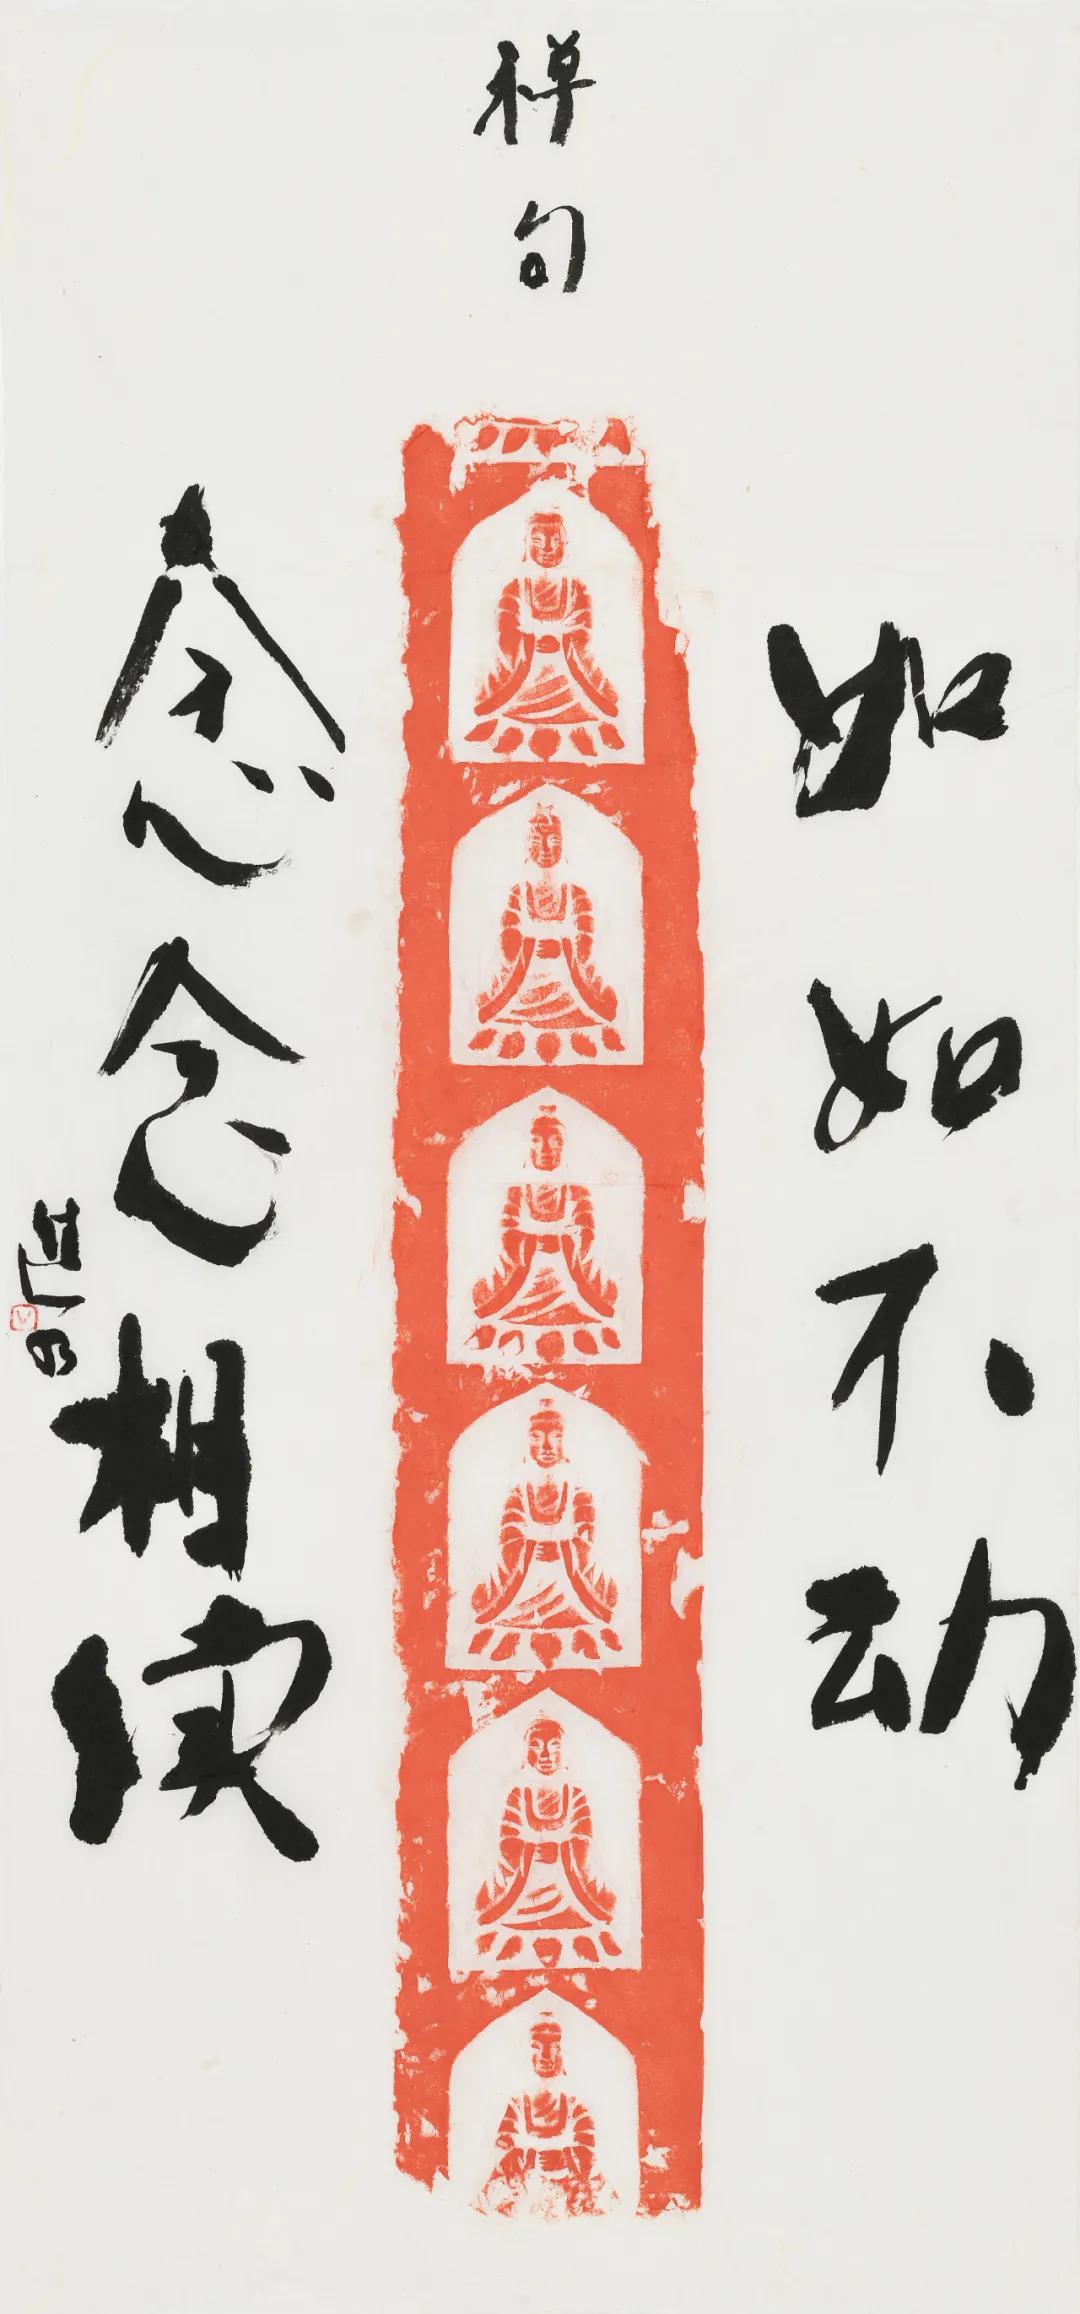 禅句
如如不动
念念相续